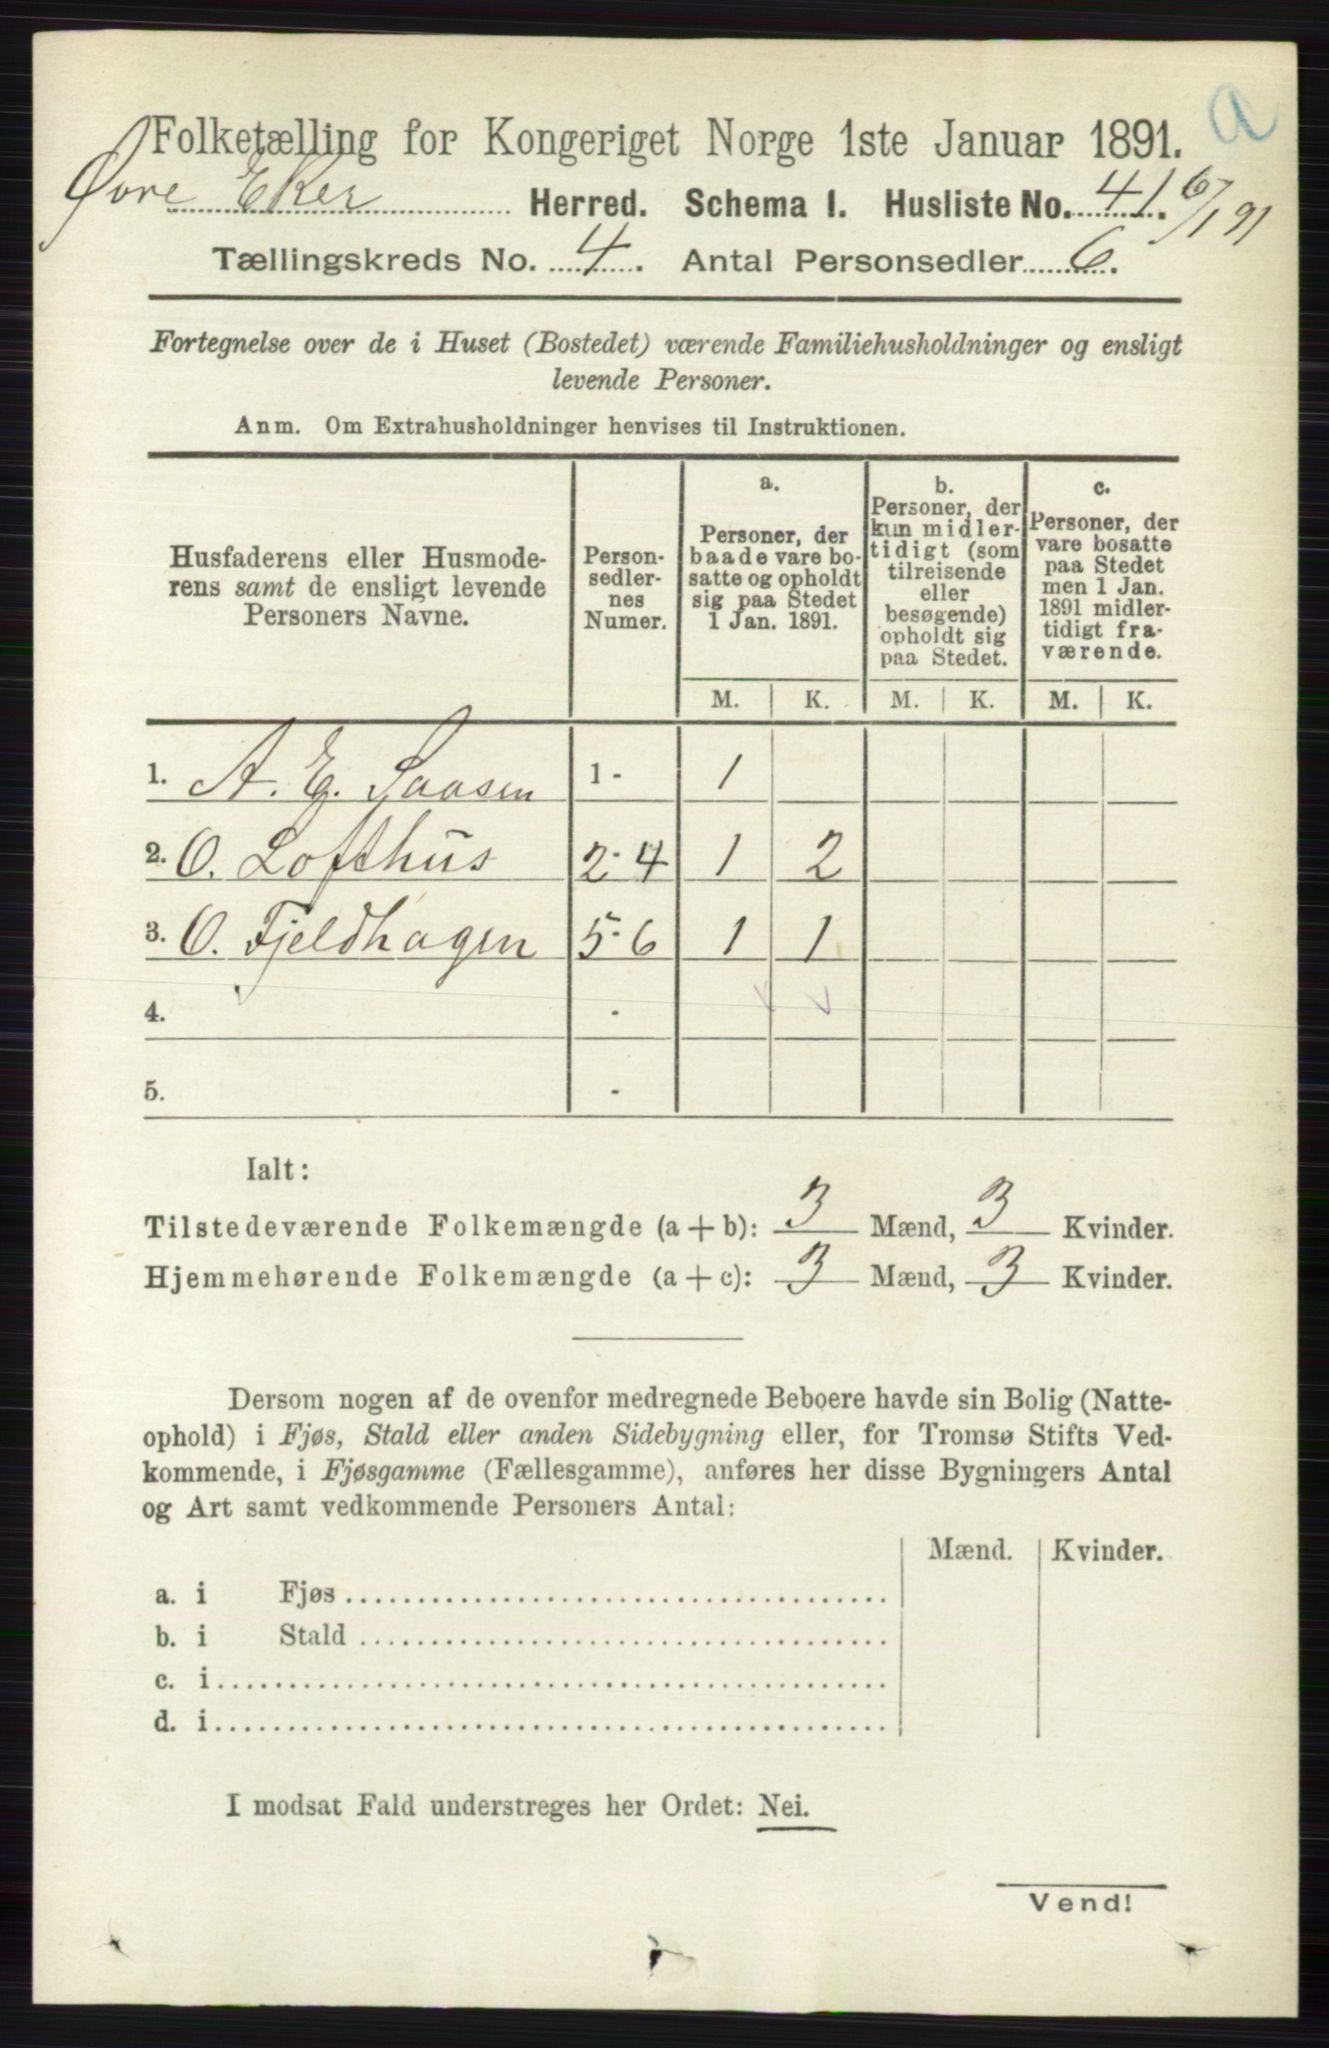 a
Folketælling for Kongeriget Norge 1ste Januar 1891.
Øvre Eker Herred. Schema I. Husliste No. 41. 6/1 91
Tællingskreds No. 4. Antal Personsedler 6.
Fortegnelse over de i Huset (Bostedet) værende Familiehusholdninger og ensligt
levende Personer.
Anm. Om Extrahusholdninger henvises til Instruktionen.
Husfaderens eller Husmode-
rens samt de ensligt levende
Personers Navne.
Person-
sedler-
nes
Numer.
a.
Personer, der
baade vare bo-
satte og opholdt
sig paa Stedet
1 Jan. 1891.
b.
Personer, der
kun midler-
tidigt (som
tilreisende
eller
besøgende)
opholdt sig
paa Stedet.
c.
Personer, der
vare bosatte
paa Stedet
men 1 Jan.
1891 midler-
tidigt fra-
værende.
M. K. M. K. M. K.
1. A. E. Saasen 1 - 1
2. O. Lofthus 2-4 1 2
3. O. Fjeldhagen 5-6 1 1
4. -
5. -
Ialt:
Tilstedeværende Folkemængde (a + b): 3 Mænd, 3 Kvinder.
Hjemmehørende Folkemængde (a + c): 3 Mænd, 3 Kvinder.
Dersom nogen af de ovenfor medregnede Beboere havde sin Bolig (Natte-
ophold) i Fjøs, Stald eller anden Sidebygning eller, for Tromsø Stifts Ved-
kommende, i Fjøsgamme (Fællesgamme), anføres her disse Bygningers Antal
og Art samt vedkommende Personers Antal:
Mænd. Kvinder.
a. i Fjøs
b. i Stald
c. i
d. i
I modsat Fald understreges her Ordet: Nei.
Vend!